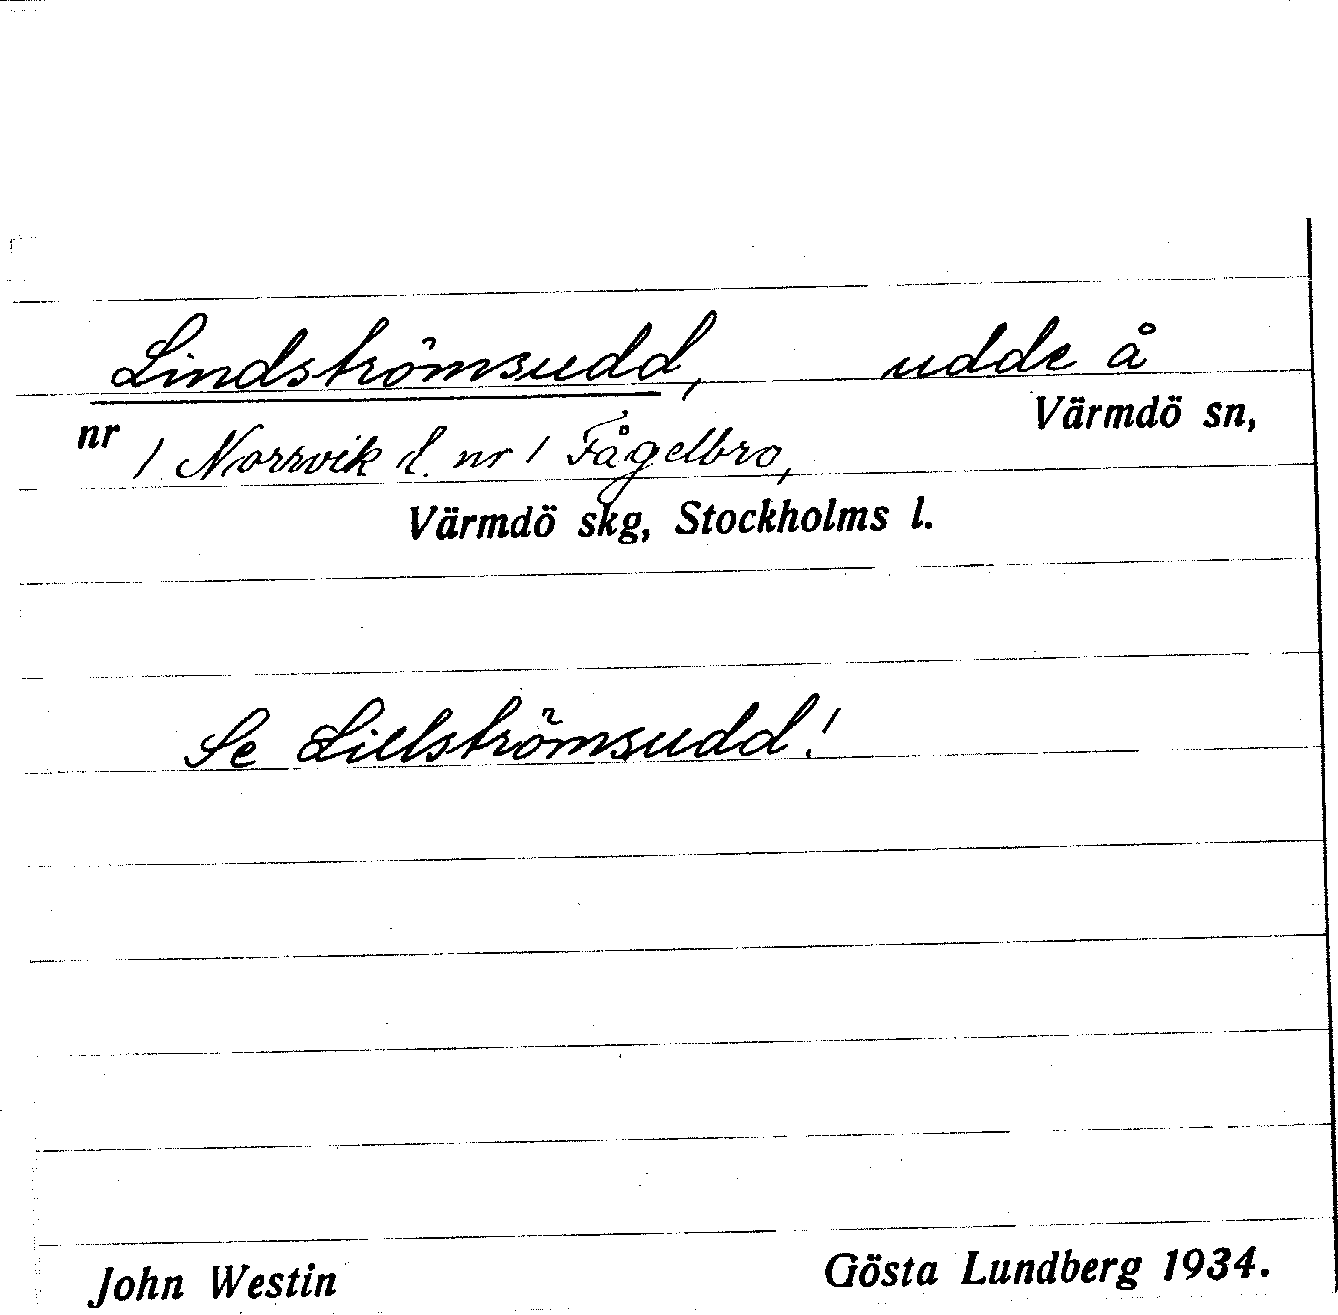 Lindströmsudd, udde å
nr 1 Norrvik l. nr 1 Fågelbro, Värmdö sn,
Värmdö skg, Stockholms l.
Se Lillströmsudd!
John Westin Gösta Lundberg 1934.